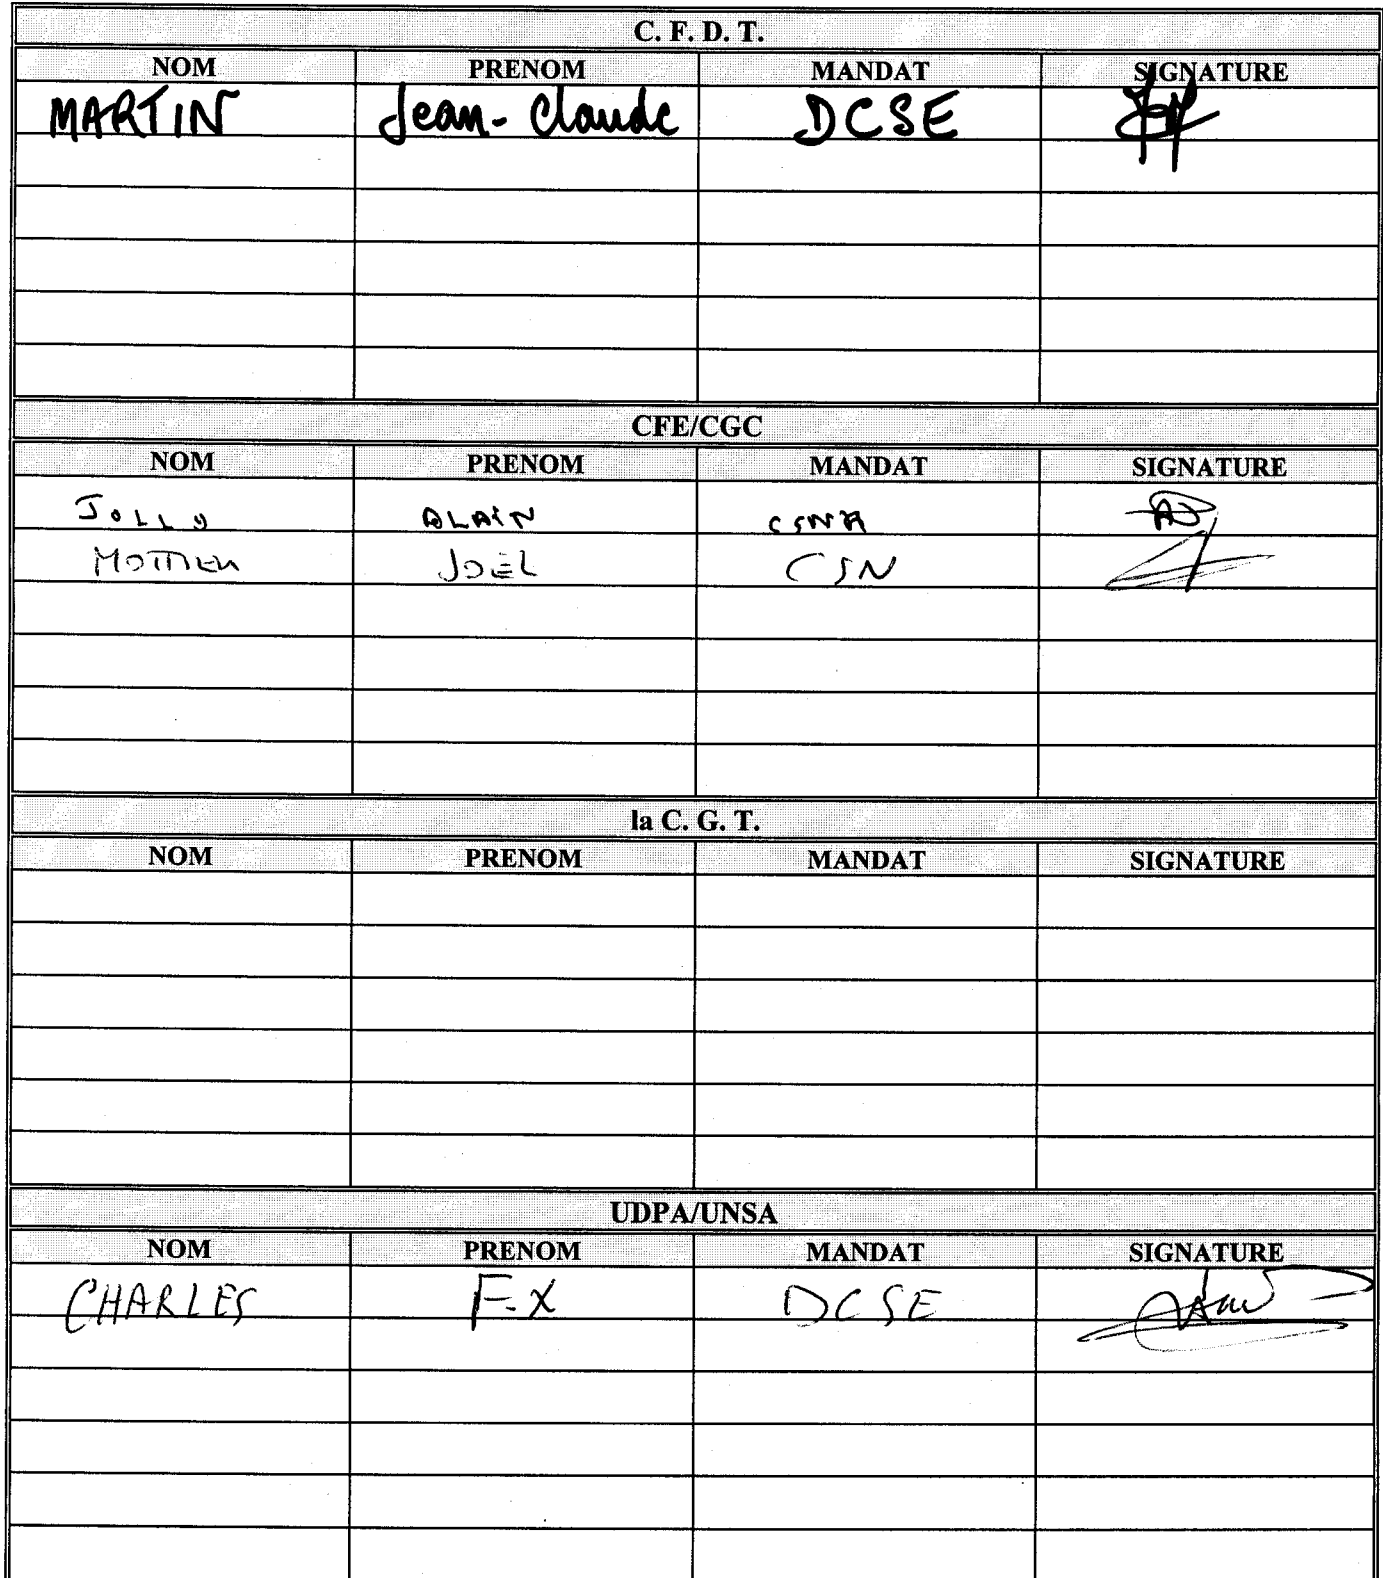 C. F. D. T.
NOM PRENOM MANDAT SIGNATURE
MARTIN Jean-Claude DCSE
CFE/CGC
NOM PRENOM MANDAT SIGNATURE
JOLLY ALAIN CSNA
JOËL CSN
la C. G. T.
NOM PRENOM MANDAT SIGNATURE
UDPA/UNSA
NOM PRENOM MANDAT SIGNATURE
CHARLES F-X DCSE